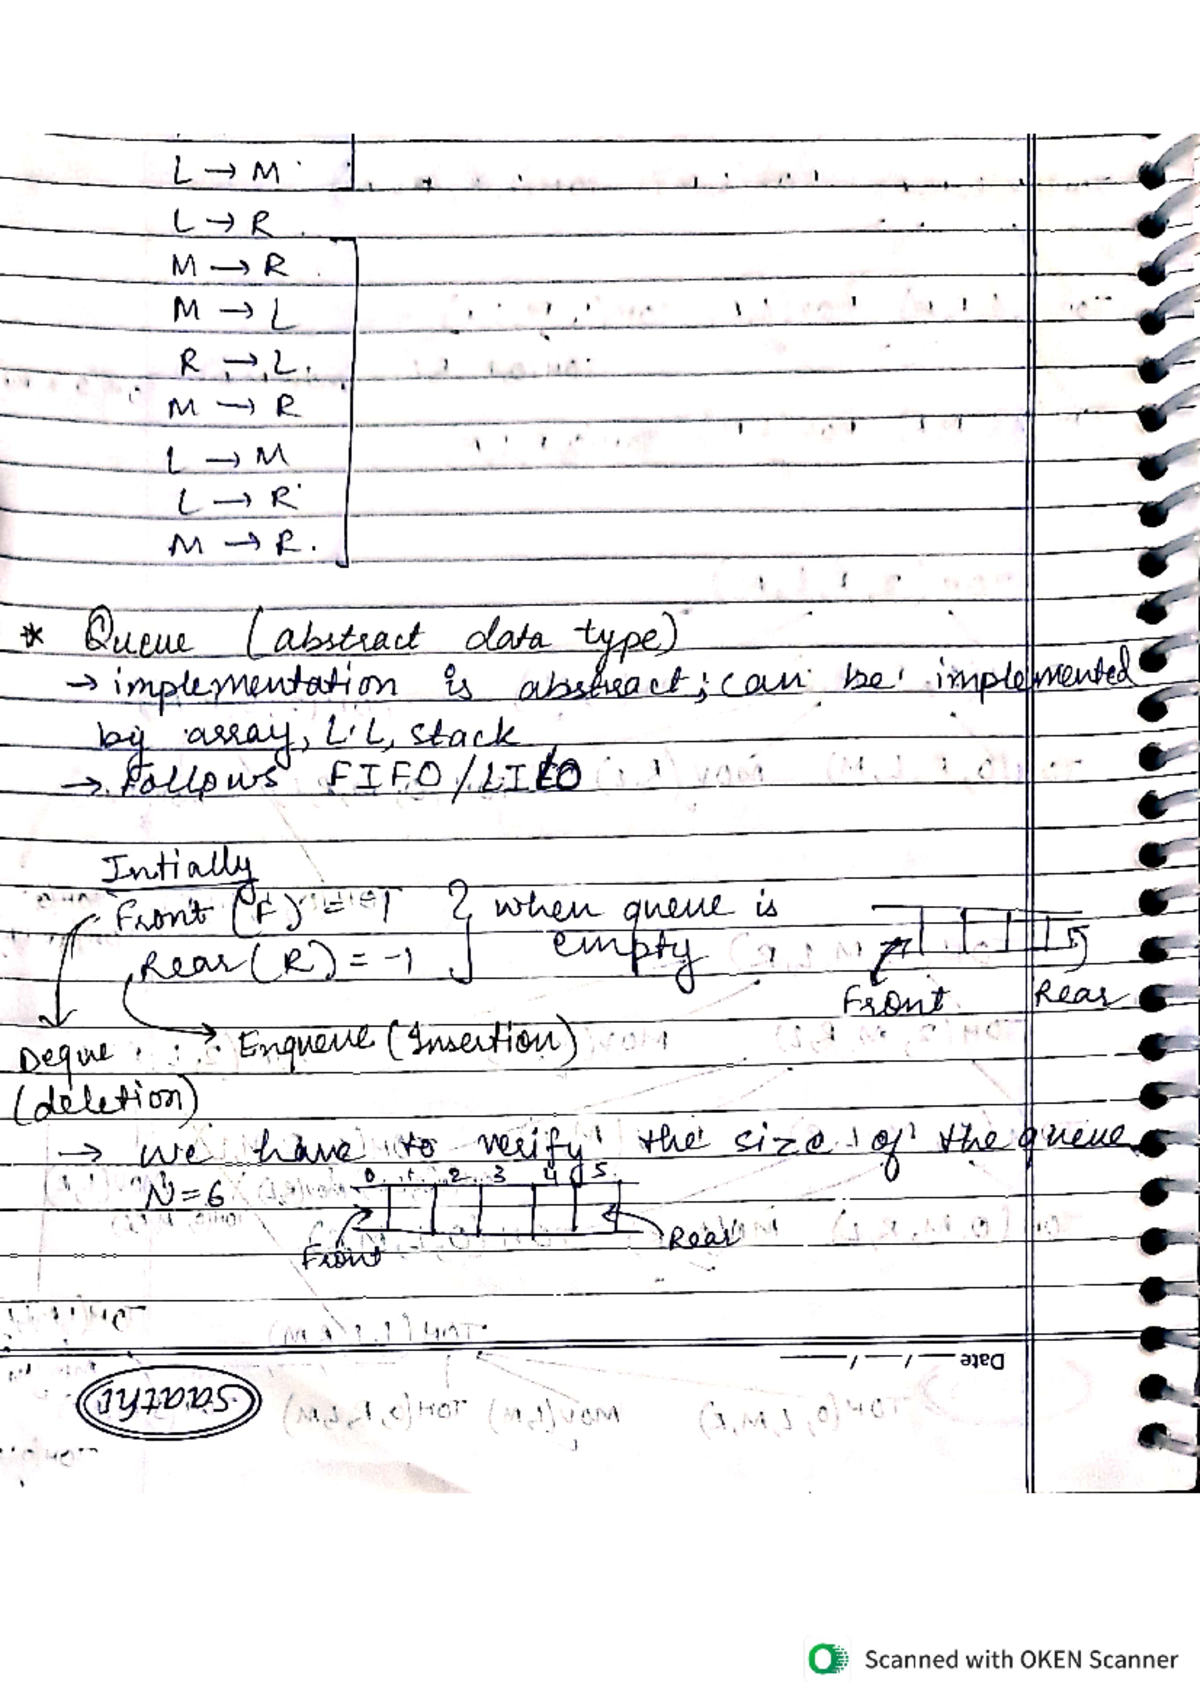 L → M
L → R
M → R
M → L
R → L.
M → R
L → M
L → R
M → R.
* Queue (abstract data type)
→ implementation is abstract; can be implemented
by array, L.L, stack
→ Follows FIFO/LILO
Intially
Front (F) = -1 } when queue is
Rear (R) = -1 empty
Front Rear
Enqueue (Insertion)
Deque
(deletion)
→ we have to verify the size of the queue
N=6 0 1 2 3 4 5
Front Rear
Date
Saathi
Scanned with OKEN Scanner